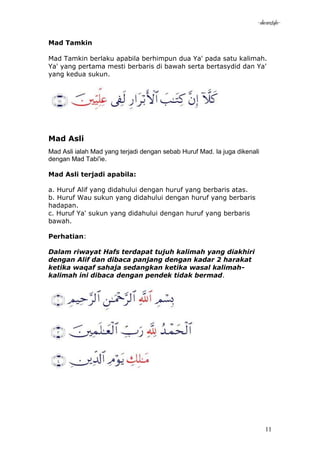 -skrontjah-
Mad Tamkin
Mad Tamkin berlaku apabila berhimpun dua Ya' pada satu kalimah.
Ya' yang pertama mesti berbaris di bawah serta bertasydid dan Ya'
yang kedua sukun.
كَلَّآ إِنَّ كِتَـٰبَ ٱلْأَبْرَارِ لَفِى عِلِّيِّينَ ﴿١٨﴾
Mad Asli
Mad Asli ialah Mad yang terjadi dengan sebab Huruf Mad. Ia juga dikenali
dengan Mad Tabi'ie.
Mad Asli terjadi apabila:
a. Huruf Alif yang didahului dengan huruf yang berbaris atas.
b. Huruf Wau sukun yang didahului dengan huruf yang berbaris
hadapan.
c. Huruf Ya' sukun yang didahului dengan huruf yang berbaris
bawah.
Perhatian:
Dalam riwayat Hafs terdapat tujuh kalimah yang diakhiri
dengan Alif dan dibaca panjang dengan kadar 2 harakat
ketika waqaf sahaja sedangkan ketika wasal kalimah-
kalimah ini dibaca dengan pendek tidak bermad.
بِسْمِ ٱللَّهِ ٱلرَّحْمَـٰنِ ٱلرَّحِيمِ ﴿١﴾
ٱلْحَمْدُ لِلَّهِ رَبِّ ٱلْعَـٰلَمِينَ ﴿٢﴾
مَـٰلِكِ يَوْمِ ٱلدِّينِ ﴿٤﴾
11